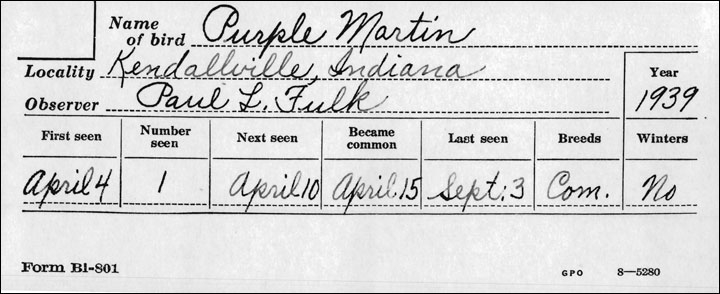 Name of bird Purple Martin
Locality Kendallville, Indiana
Observer Paul L. Fulk
Year
1939
First seen Number seen Next seen Became common Last seen Breeds Winters
April 4 1 April 10 April 15 Sept. 3 Com. No
Form BI-801 GPO 8—5280